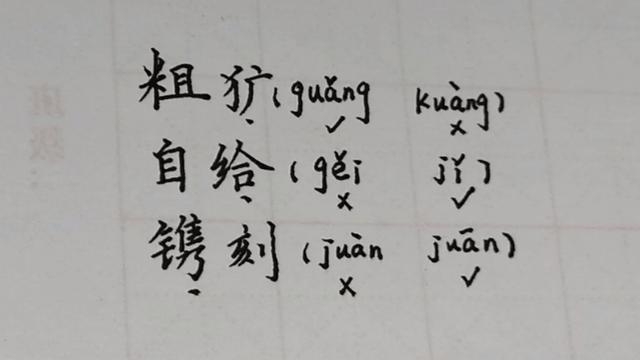 粗犷(guǎng kuàng)
✓ ×
自给(gěi jǐ)
× ✓
镌刻(juàn juān)
× ✓
班级: